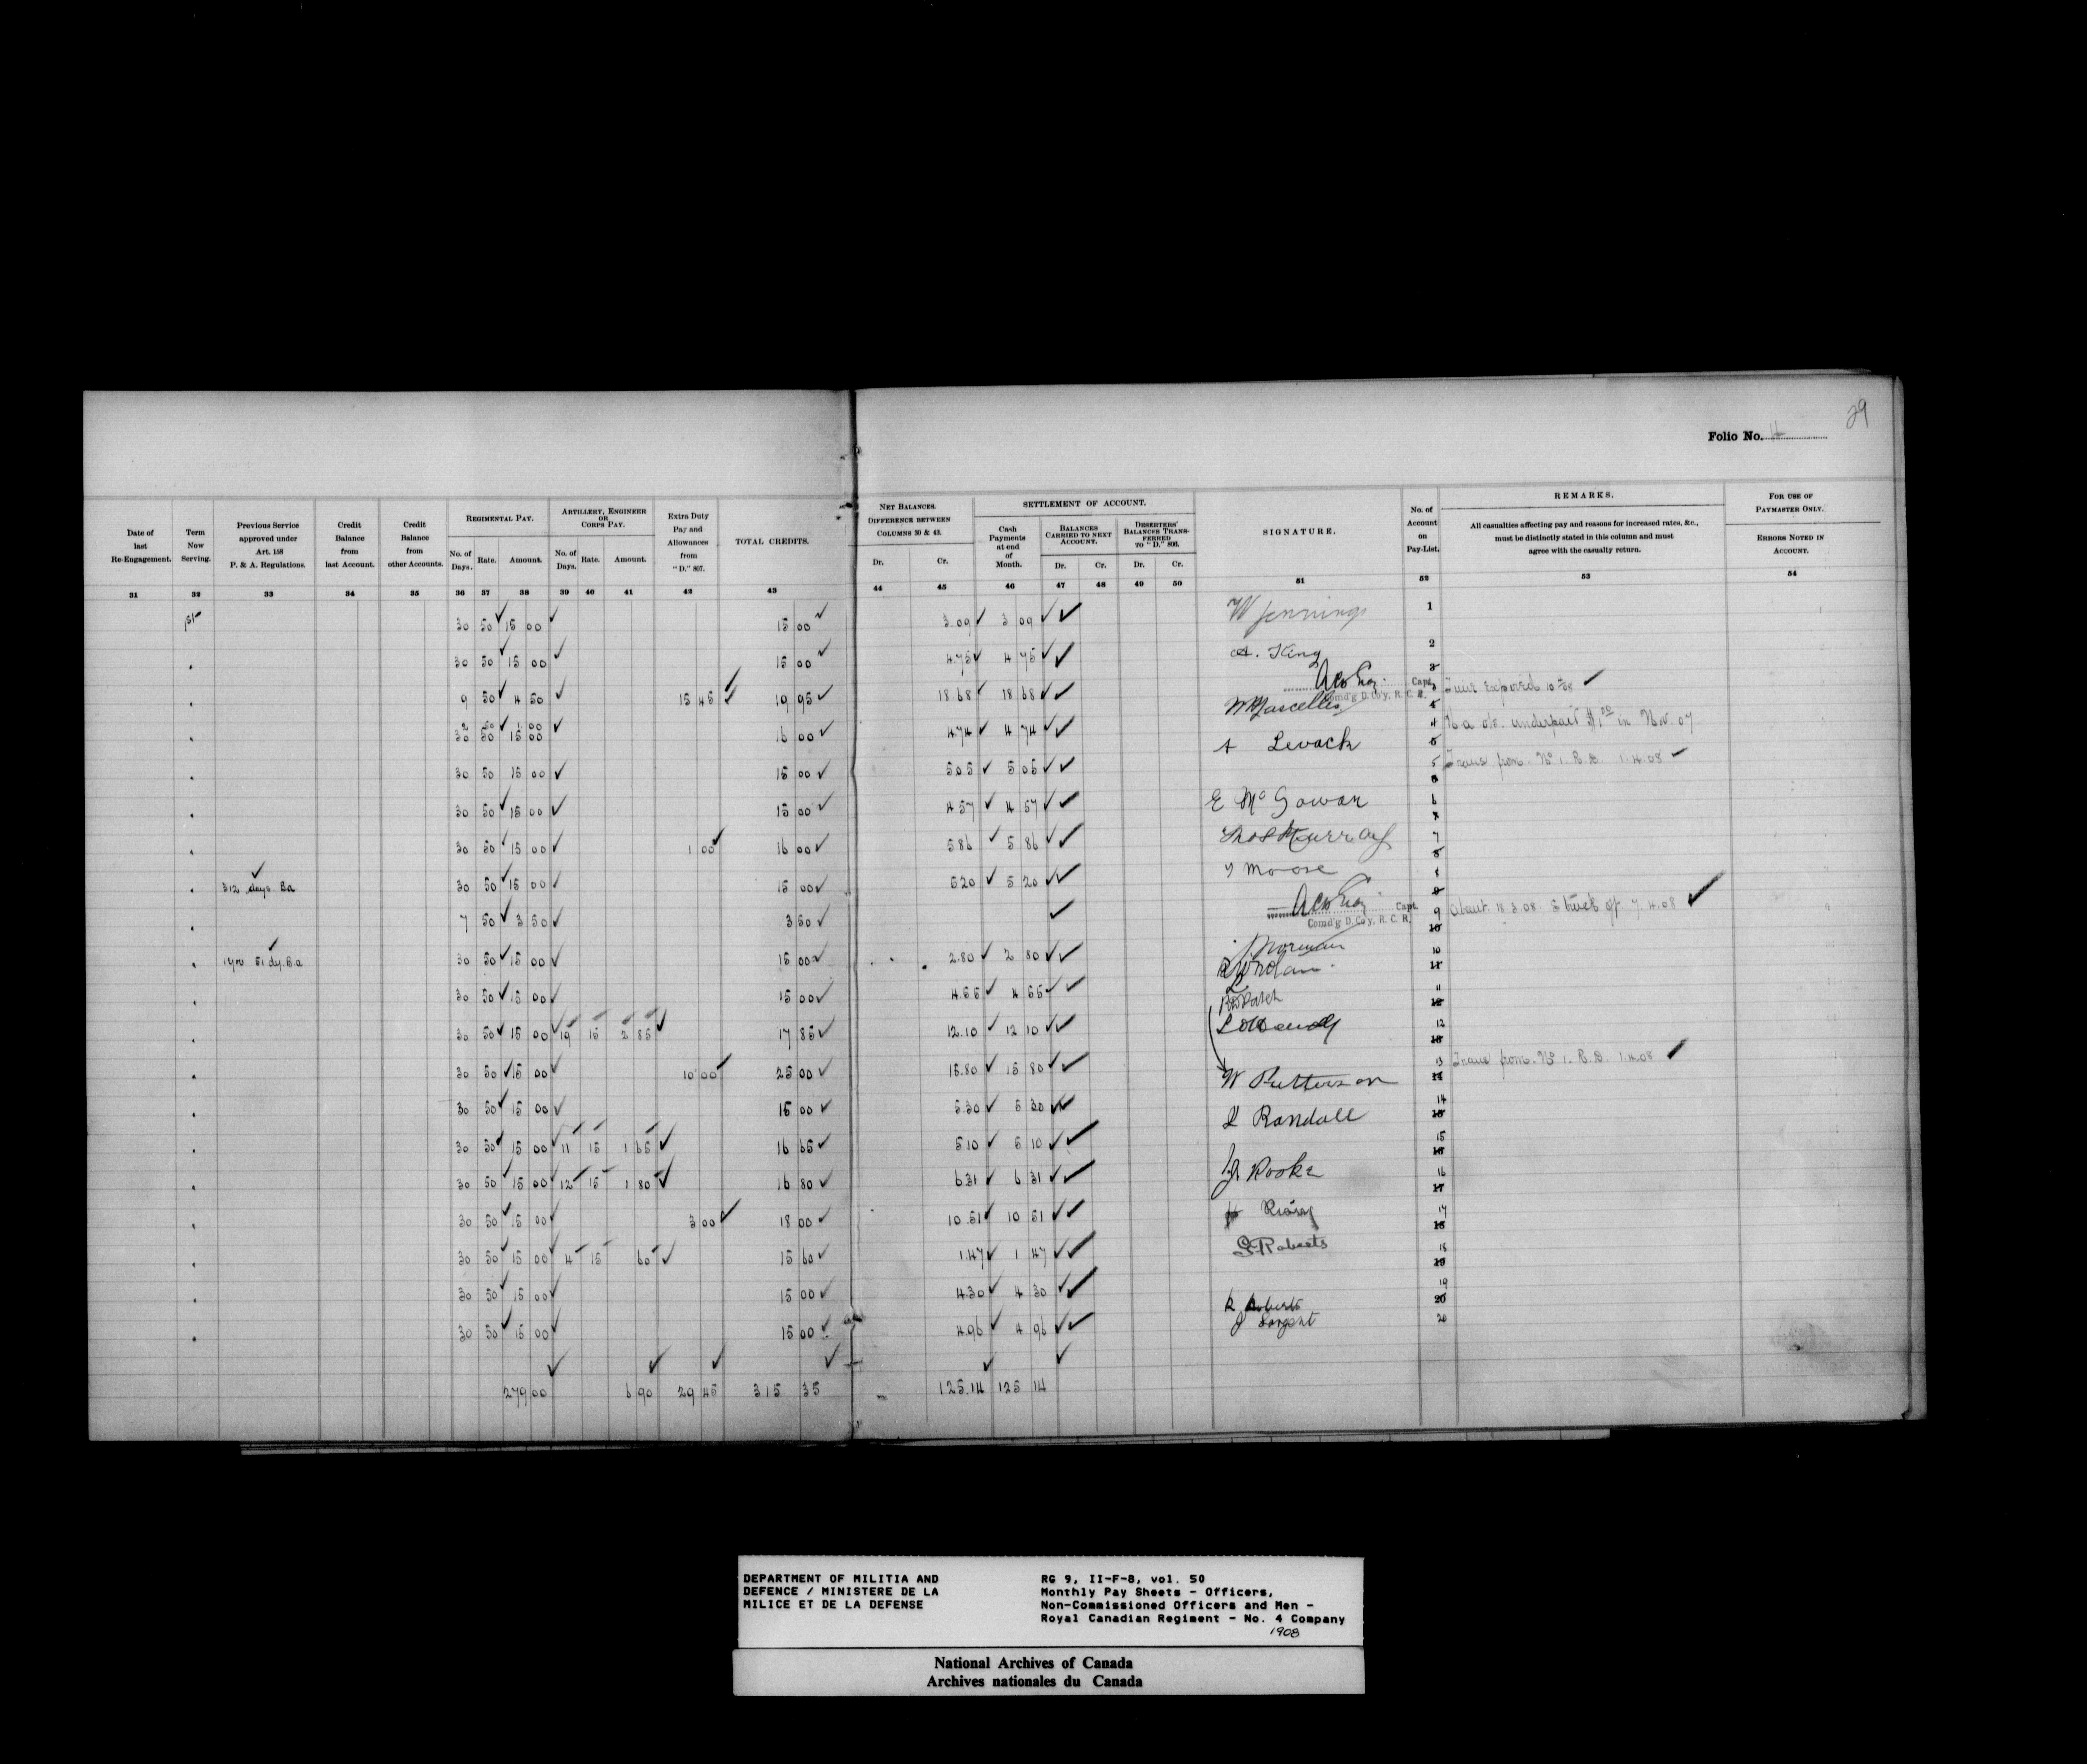 29
Folio No. 4
Date of last Re-Engagement.
Term Now Serving.
Previous Service approved under Art. 158 P. & A. Regulations.
Credit Balance from last Account.
Credit Balance from other Accounts.
REGIMENTAL PAY.
No. of Days.
Rate.
Amount.
ARTILLERY, ENGINEER OR CORPS PAY.
No. of Days.
Rate.
Amount.
Extra Duty Pay and Allowances from "D." 807.
TOTAL CREDITS.
NET BALANCES.
DIFFERENCE BETWEEN COLUMNS 30 & 43.
Dr.
Cr.
SETTLEMENT OF ACCOUNT.
Cash Payments at end of Month.
BALANCES CARRIED TO NEXT ACCOUNT.
Dr.
Cr.
DESERTERS' BALANCES TRANSFERRED TO "D." 806.
Dr.
Cr.
SIGNATURE.
No. of Account on Pay-List.
REMARKS.
All casualties affecting pay and reasons for increased rates, &c., must be distinctly stated in this column and must agree with the casualty return.
FOR USE OF PAYMASTER ONLY.
ERRORS NOTED IN ACCOUNT.
31 32 33 34 35 36 37 38 39 40 41 42 43 44 45 46 47 48 49 50 51 52 53 54
1st 30 50 15 00 15 00 3.09 3 09 W Jennings 1
30 50 15 00 15 00 4.75 4 75 A. King 2
9 50 4 50 15 45 19 95 18.68 18 68 Capt. Comd'g D. Co'y, R. C. R. 3 Time Expired
2 50 1 00
30 50 15 00 16 00 4.74 4 74 4 underpaid $1.00 in Nov. 07
30 50 15 00 15 00 5.05 5 05 A Levack 5 Trans from No 1. R.D. 1.4.08
30 50 15 00 15 00 4.57 4 57 E McGowan 6
30 50 15 00 1 00 16 00 5.86 5 86 Thos Murray 7
312 days Ba 30 50 15 00 15 00 5.20 5 20 Moore 8
7 50 3 50 3 50 Capt. Comd'g D. Co'y, R. C. R. 9 Struck off 7.4.08
30 50 15 00 15 00 2.80 2 80 10
30 50 15 00 15 00 4.55 4 55 11
30 50 15 00 19 15 2 85 17 85 12.10 12 10 12
30 50 15 00 10 00 25 00 15.80 15 80 W Patterson 13 Trans from No 1. R.D. 1.4.08
30 50 15 00 15 00 5.30 5 30 Randall 14
30 50 15 00 11 15 1 65 16 65 5.10 5 10 15
30 50 15 00 12 15 1 80 16 80 6.31 6 31 Rooke 16
30 50 15 00 3 00 18 00 10.51 10 51 17
30 50 15 00 4 15 60 15 60 1.47 1 47 Roberts 18
30 50 15 00 15 00 4.30 4 30 R Roberts 19
30 50 15 00 15 00 4.96 4 96 J Sargent 20
279 00 6 90 29 45 315 35 125.14 125 14
DEPARTMENT OF MILITIA AND
DEFENCE / MINISTERE DE LA
MILICE ET DE LA DEFENSE
RG 9, II-F-8, vol. 50
Monthly Pay Sheets - Officers,
Non-Commissioned Officers and Men -
Royal Canadian Regiment - No. 4 Company
1908
National Archives of Canada
Archives nationales du Canada